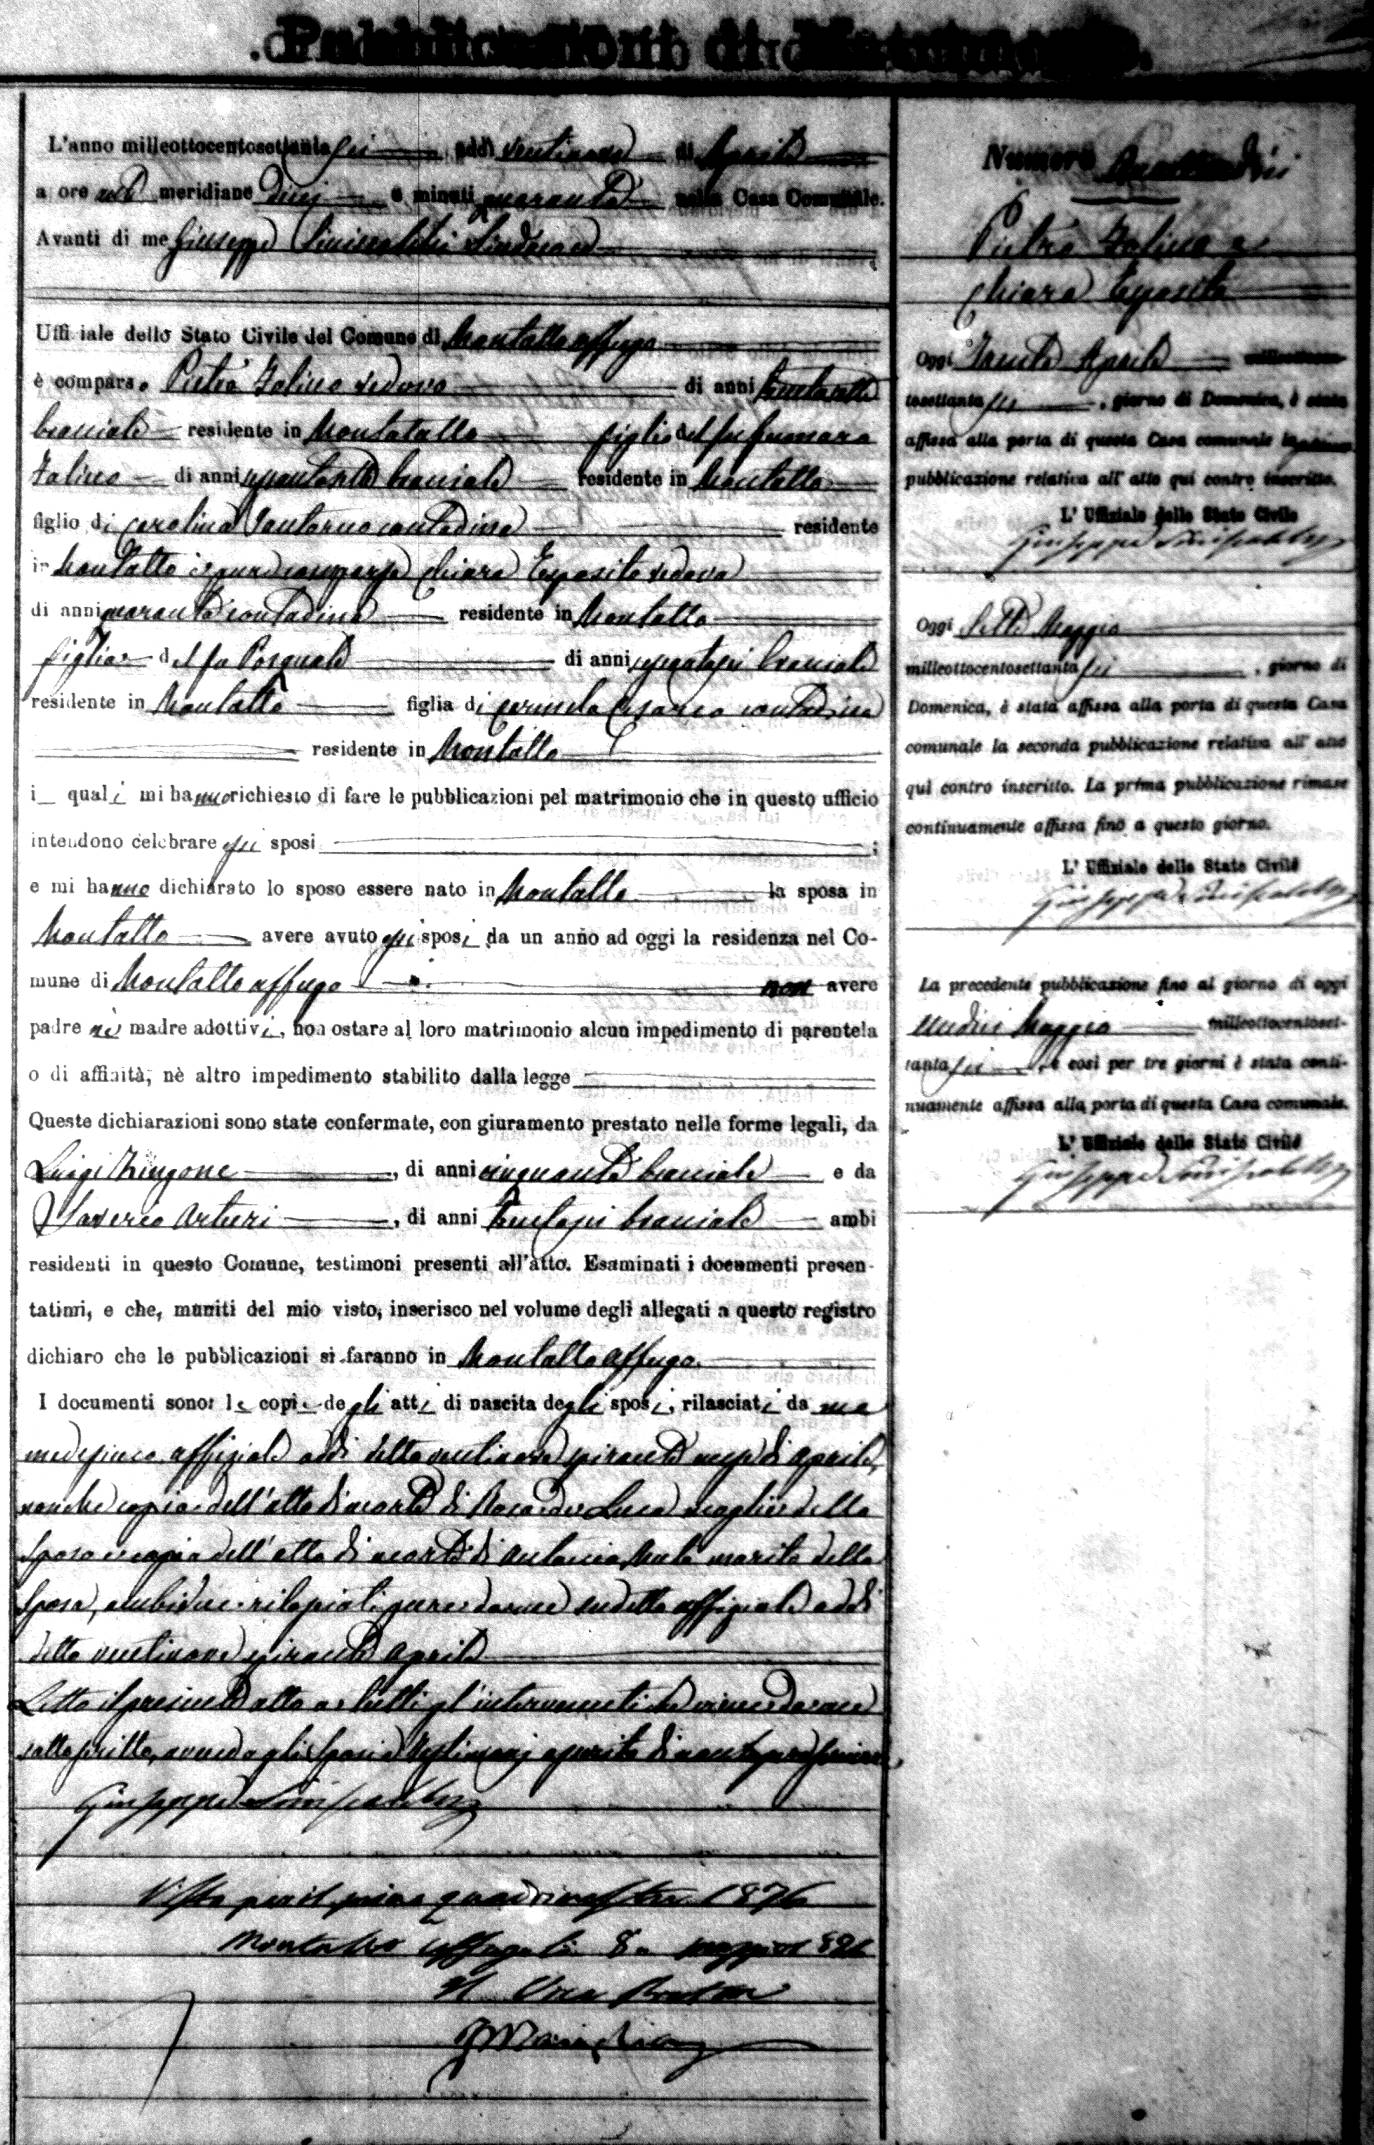 Pubblicazioni di Matrimonio.
L'anno milleottocentosettanta sei addì ventinove di Aprile
a ore anti meridiane dieci e minuti quaranta nella Casa Comunale.
Avanti di me Giuseppe Siniscalchi Sindaco
Uffiziale dello Stato Civile del Comune di Montalto uffugo
è comparso Pietro Folino vedovo di anni
bracciale residente in Montalto figlio del fu Gennaro
Folino di anni bracciale residente in Montalto
figlio di Carolina Santoro contadina residente
in Montalto è pure comparsa Chiara Esposito vedova
di anni quaranta contadina residente in Montalto
figlia del fu Pasquale di anni bracciale
residente in Montalto figlia di contadina
residente in Montalto
i quali mi hanno richiesto di fare le pubblicazioni pel matrimonio che in questo ufficio
intendono celebrare essi sposi ;
e mi hanno dichiarato lo sposo essere nato in Montalto la sposa in
Montalto avere avuto essi sposi da un anno ad oggi la residenza nel Co-
mune di Montalto uffugo non avere
padre nè madre adottivi, non ostare al loro matrimonio alcun impedimento di parentela
o di affinità, nè altro impedimento stabilito dalla legge
Queste dichiarazioni sono state confermate, con giuramento prestato nelle forme legali, da
Luigi Zingone, di anni cinquanta bracciale e da
Saverio Arturi, di anni trentasei bracciale ambi
residenti in questo Comune, testimoni presenti all'atto. Esaminati i documenti presen-
tatimi, e che, muniti del mio visto, inserisco nel volume degli allegati a questo registro
dichiaro che le pubblicazioni si faranno in Montalto Uffugo.
I documenti sono: le copie degli atti di nascita degli sposi, rilasciati da me
medesimo uffiziale addì detto ventinove spirante mese di aprile,
nonche copia dell'atto di morte di Rosa de Luca moglie dello
sposo e copia dell'atto di morte di Antonio marito della
sposa, ambidue rilasciati pure da me sudetto uffiziale addì
detto ventinove spirante aprile
Letto il presente atto a tutti gl'intervenuti che viene da me
sottoscritto, avendo gli sposi e testimoni asserito di non sapere scrivere
Giuseppe Siniscalchi
Visto pel primo quadrimestre 1876
Montalto Uffugo li 8 maggio 876
Il Vice Pretore
Numero
Pietro Folino e
Chiara Esposito
Oggi Trenta Aprile milleottocen-
tosettanta sei, giorno di Domenica, è stata
affissa alla porta di questa Casa comunale la prima
pubblicazione relativa all'atto qui contro inscritto.
L'Uffiziale dello Stato Civile
Giuseppe Siniscalchi
Oggi sette Maggio
milleottocentosettanta sei, giorno di
Domenica, è stata affissa alla porta di questa Casa
comunale la seconda pubblicazione relativa all'atto
qui contro inscritto. La prima pubblicazione rimase
continuamente affissa fino a questo giorno.
L'Uffiziale dello Stato Civile
Giuseppe Siniscalchi
La precedente pubblicazione fino al giorno di oggi
undici Maggio milleottocentoset-
tanta sei, e così per tre giorni è stata conti-
nuamente affissa alla porta di questa Casa comunale.
L'Uffiziale dello Stato Civile
Giuseppe Siniscalchi